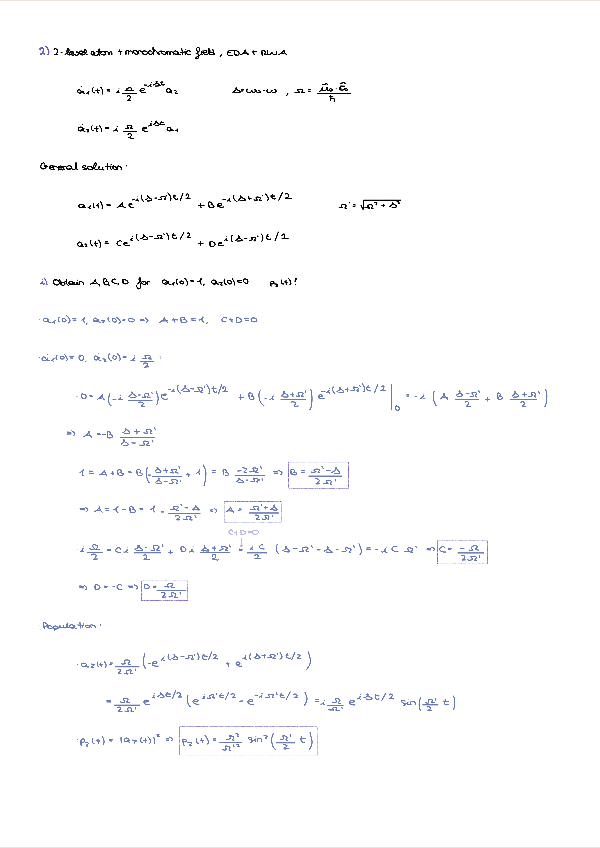 2) 2-level atom + monochromatic field, EDA + RWA
ȧ₁(t) = i Ω/2 e^{-iΔt} a₂ Δ=ω₀-ω , Ω = μ̄₀·ε̄₀/ħ
ȧ₂(t) = i Ω/2 e^{iΔt} a₁
General solution:
a₁(t) = A e^{-i(Δ-Ω')t/2} + B e^{-i(Δ+Ω')t/2} Ω' = √(Ω² + Δ²)
a₂(t) = C e^{i(Δ-Ω')t/2} + D e^{i(Δ+Ω')t/2}
i) Obtain A,B,C,D for a₁(0)=1, a₂(0)=0 p₂(t)?
·a₁(0)=1, a₂(0)=0 => A+B=1, C+D=0
·ȧ₁(0)=0, ȧ₂(0)= i Ω/2 :
·0 = A(-i (Δ-Ω')/2) e^{-i(Δ-Ω')t/2} + B(-i (Δ+Ω')/2) e^{-i(Δ+Ω')t/2} |₀ = -i (A (Δ-Ω')/2 + B (Δ+Ω')/2)
=> A = -B (Δ+Ω')/(Δ-Ω')
1 = A+B = B(-(Δ+Ω')/(Δ-Ω') + 1) = B (-2Ω')/(Δ-Ω') => B = (Ω'-Δ)/(2Ω')
=> A = 1-B = 1 - (Ω'-Δ)/(2Ω') => A = (Ω'+Δ)/(2Ω')
C+D=0
i Ω/2 = C i (Δ-Ω')/2 + D i (Δ+Ω')/2 = iC/2 (Δ-Ω'-Δ-Ω') = -i C Ω' => C = -Ω/(2Ω')
=> D = -C => D = Ω/(2Ω')
Population:
·a₂(t) = Ω/(2Ω') (-e^{i(Δ-Ω')t/2} + e^{i(Δ+Ω')t/2})
= Ω/(2Ω') e^{iΔt/2} (e^{iΩ't/2} - e^{-iΩ't/2}) = i Ω/Ω' e^{iΔt/2} sin(Ω'/2 t)
·p₂(t) = |a₂(t)|² => p₂(t) = Ω²/Ω'² sin²(Ω'/2 t)